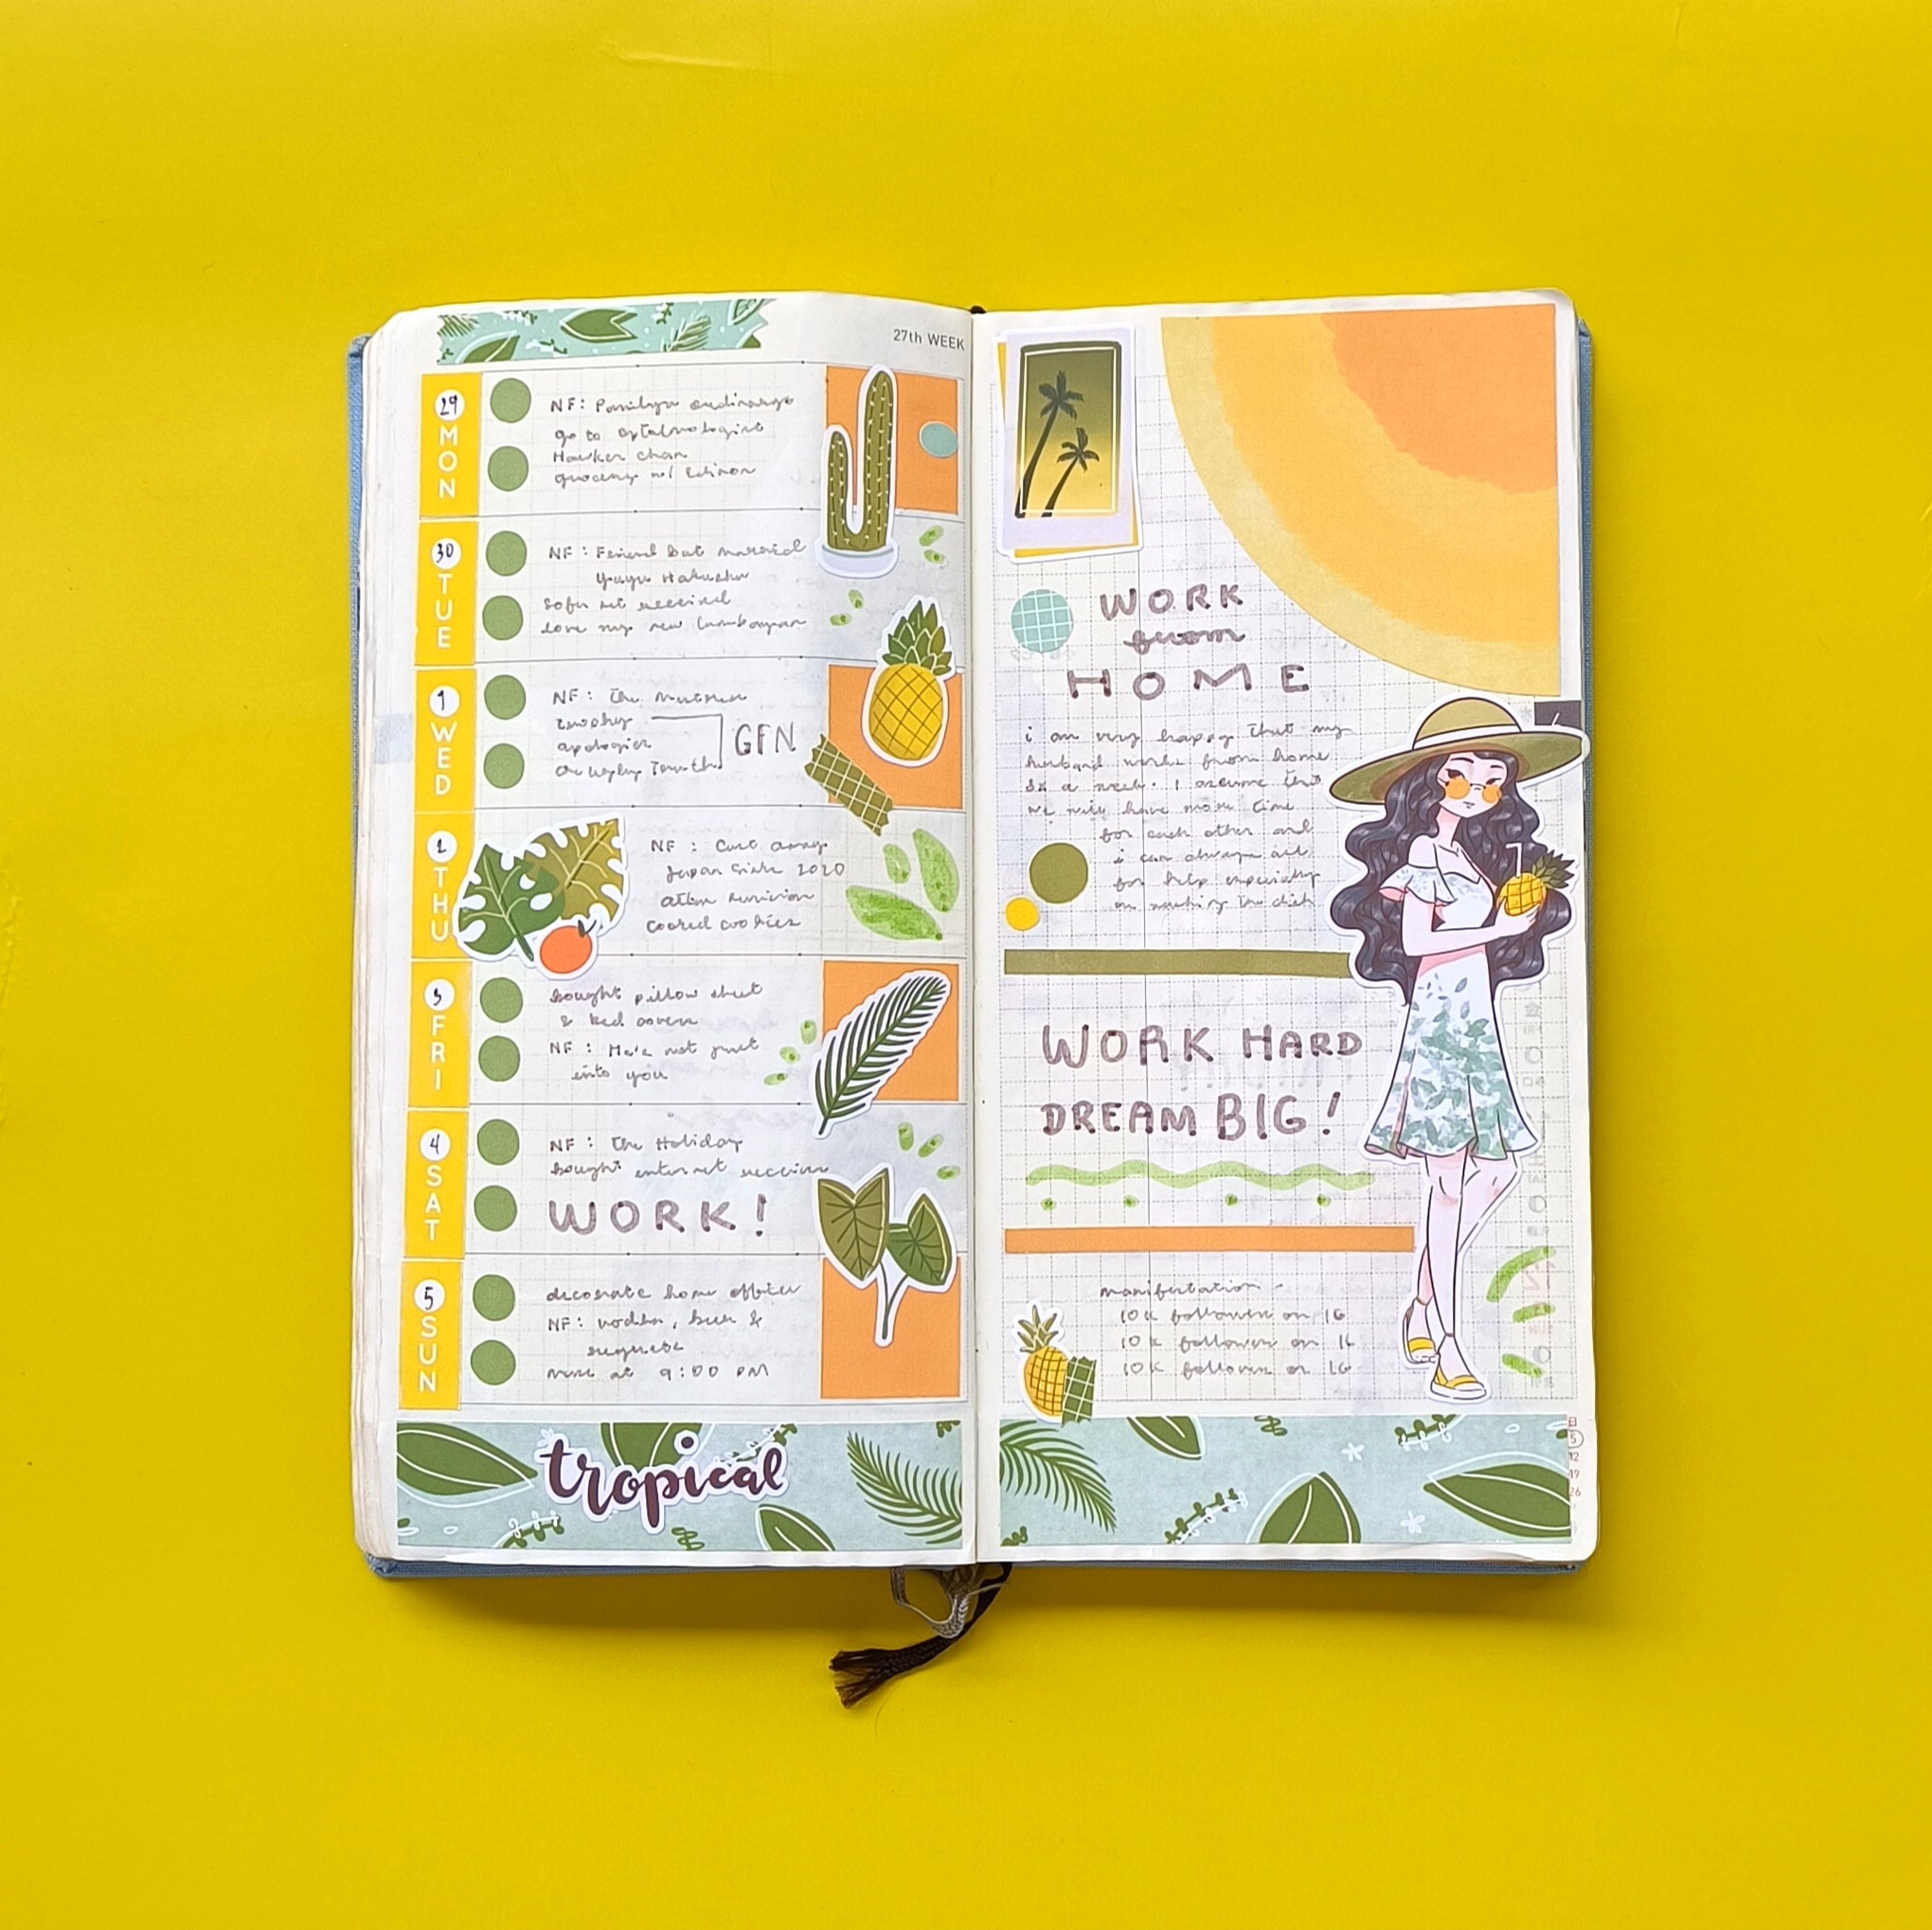 27th WEEK
29
MON
NF:
go to
Hawker chan
grocery w/ Edison
30
TUE
NF: Friend but married
Yuyu Hakusho
Sofa set received
love my new
1
WED
NF: The
trophy
apologies
the ugly truth
GFN
2
THU
NF: Cast away
Japan Sinks 2020
cooked cookies
3
FRI
bought pillow sheet
& bed cover
NF: He's not just
into you
4
SAT
NF: The Holiday
bought internet
WORK!
5
SUN
decorate home office
NF: vodka, beer &
regrets
at 9:00 PM
tropical
WORK
from
HOME
i am very happy that my
husband works from home
a week. I assume that
we will have more time
for each other and
i can always ask
for help especially
on washing the dish
WORK HARD
DREAM BIG!
manifestation -
10k followers on IG
10k followers on IG
10k followers on IG
日
5
12
19
26